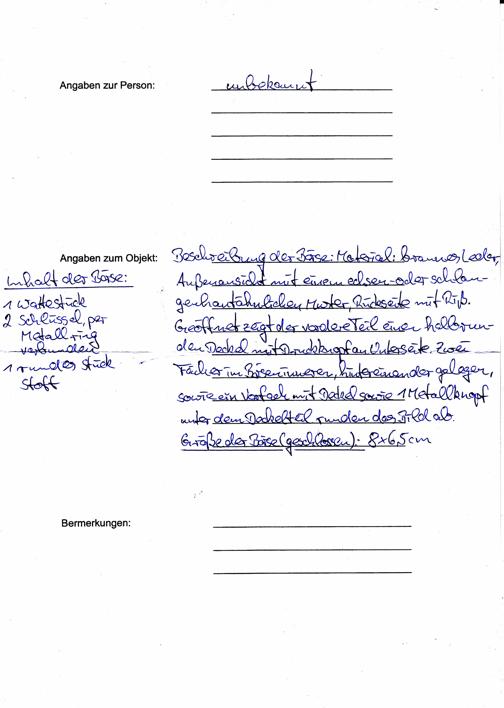 Angaben zur Person: unbekannt
Angaben zum Objekt: Beschreibung der Börse: Material: braunes Leder,
Außenansicht mit einem echsen- oder schlan-
genhautähnlichen Muster, Rückseite mit Riß.
Geöffnet zeigt der vordere Teil einen halbrun-
den Deckel mit Druckknopf an Unterseite. Zwei
Fächer im Börseninneren, hintereinander gelagert,
sowie ein Vorfach mit Deckel sowie 1 Metallknopf
unter dem Deckelteil runden das Bild ab.
Größe der Börse (geschlossen): 8x6,5cm
Inhalt der Börse:
1 Wattestück
2 Schlüssel, per
Metallring
verbunden
1 rundes Stück
Stoff
Bermerkungen: